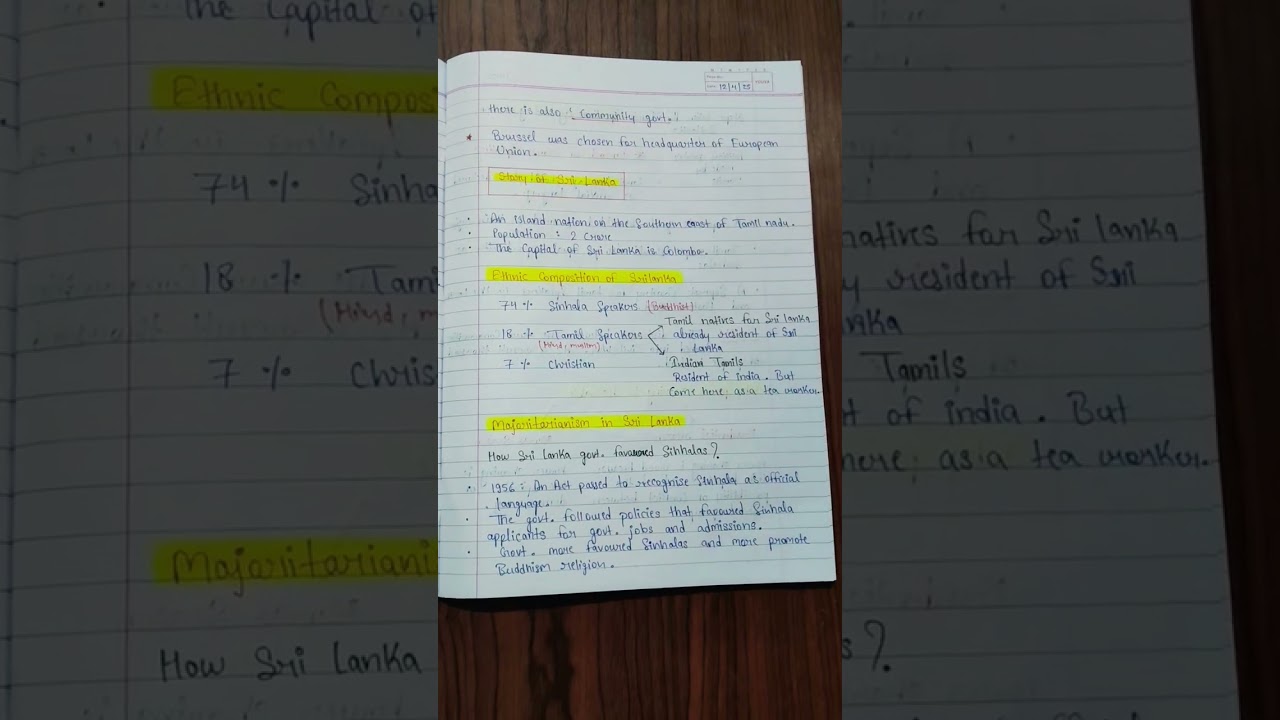 12/4/25
there is also 'Community govt.'
* Brussel was chosen for headquarter of European
Union.
Story of Sri Lanka
• An island nation, on the Southern coast of Tamil nadu.
• Population : 2 Crore
• The Capital of Sri Lanka is Colombo.
Ethnic Composition of Srilanka
74 % Sinhala Speakers (Buddhist)
18 % Tamil Speakers
(Hind, muslim)
Tamil natives for Sri lanka
already resident of Sri
Lanka
7 % Christian
Indian Tamils
Resident of india. But
Come here, as a tea worker.
Majoritarianism in Sri Lanka
How Sri Lanka govt. favoured Sihhalas?
• 1956 : An Act passed to recognise Sinhala as official
language.
• The govt. followed policies that favoured Sinhala
applicants for govt. jobs and admissions.
• Govt. more favoured Sinhalas and more promote
Buddhism religion.